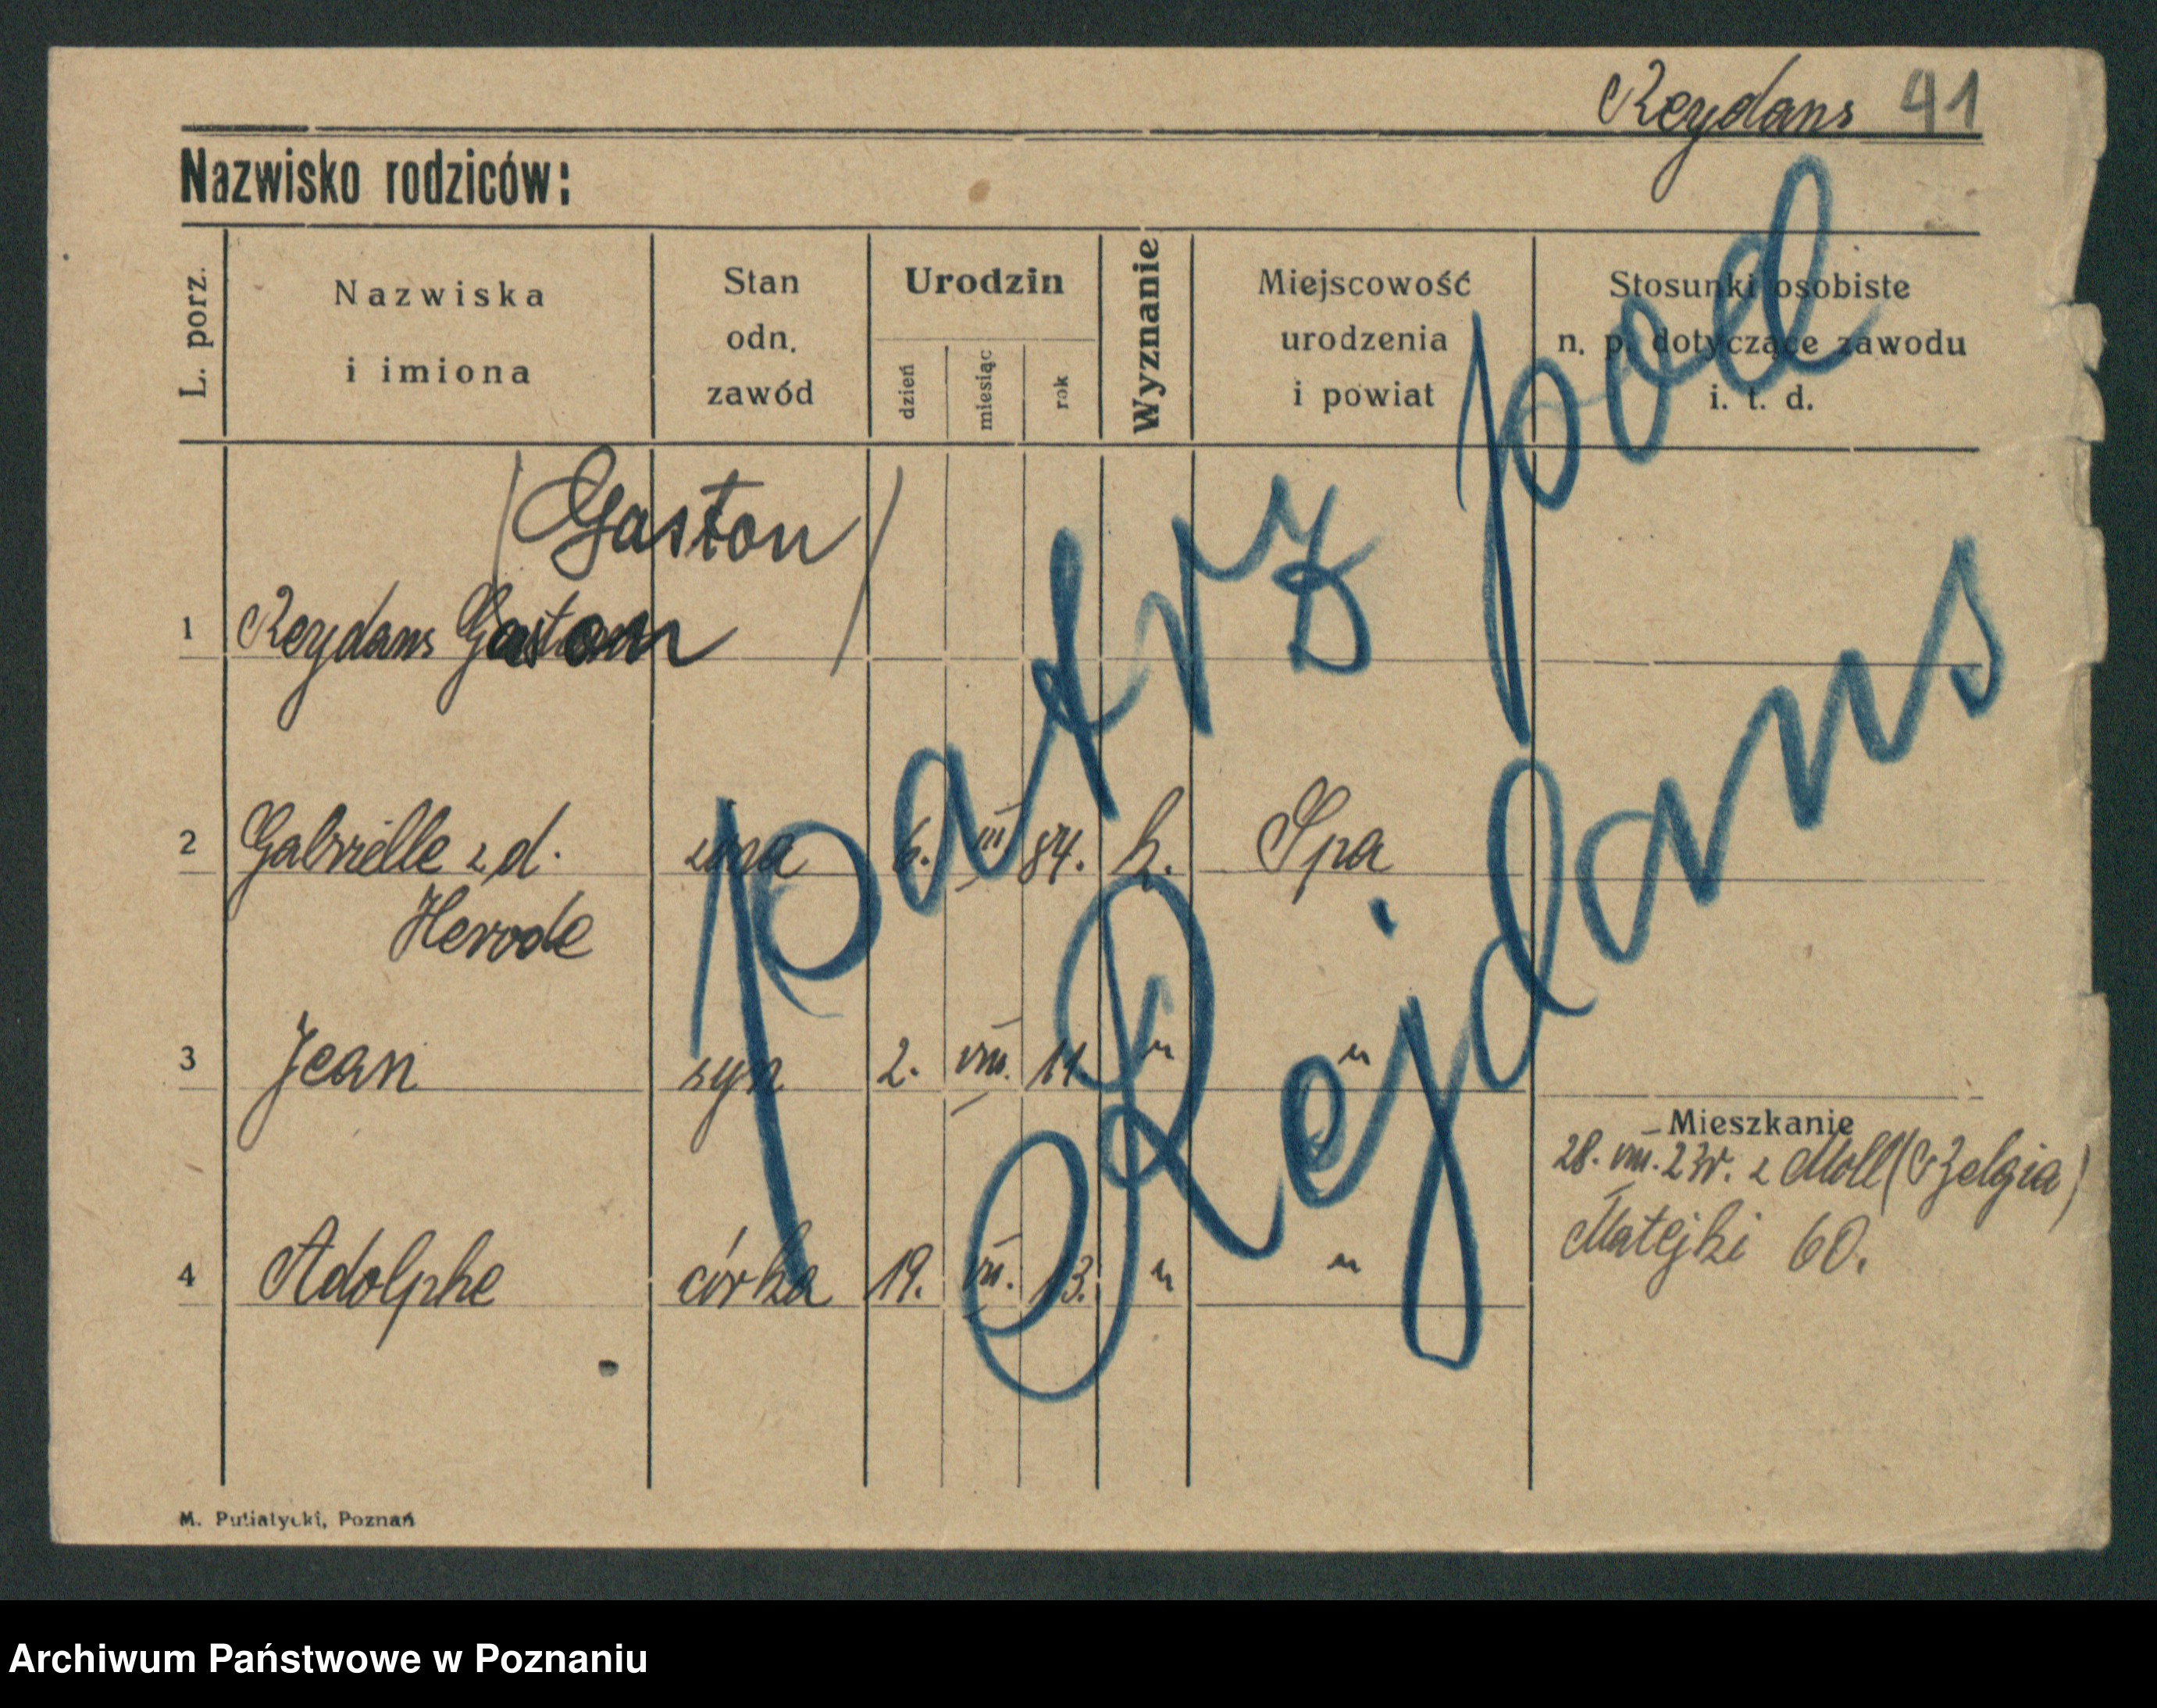 Reydans 41
Nazwisko rodziców:
L. porz.
Nazwiska
i imiona
Stan
odn.
zawód
Urodzin
dzień
miesiąc
rok
Wyznanie
Miejscowość
urodzenia
i powiat
Stosunki osobiste
n. p. dotyczące zawodu
i. t. d.
patrz pod
Rejdans
(Gaston)
1 Reydans Gaston
2 Gabrielle z d. żona 6. III 84. k. Spa
Herode
3 Jean syn 2. VIII. 11. " "
4 Adolphe córka 19. VII. 13. " "
Mieszkanie
28. VIII. 23r. z Moll (Belgia)
Matejki 60.
M. Putiatycki, Poznań
Archiwum Państwowe w Poznaniu